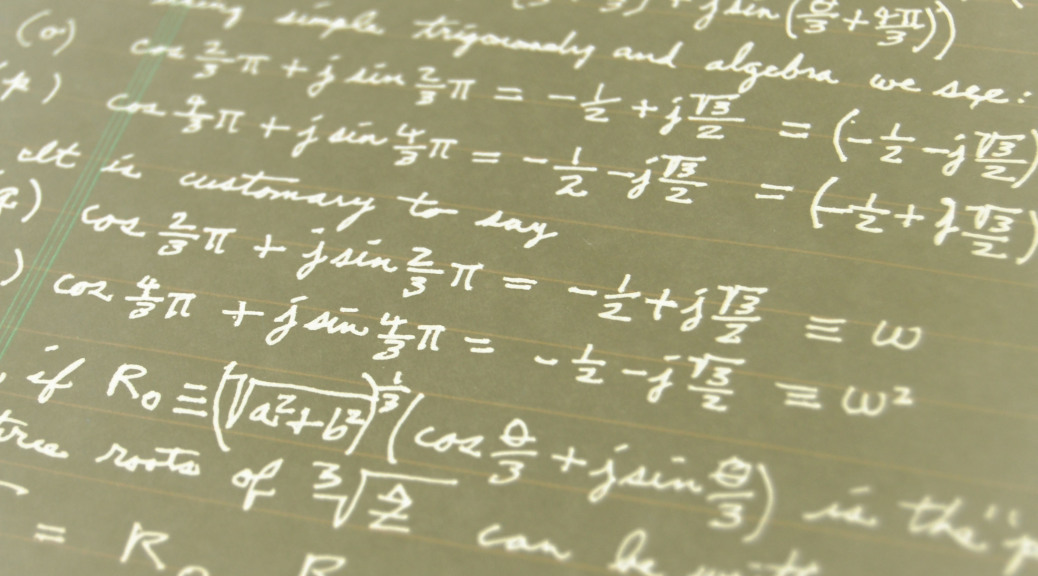 sin (θ/3 + 4π/3))
using simple trigonometry and algebra we see:
(o) cos 2/3 π + j sin 2/3 π = -1/2 + j √3/2 = (-1/2 - j √3/2)
(p) cos 4/3 π + j sin 4/3 π = -1/2 - j √3/2 = (-1/2 + j √3/2)
It is customary to say
) cos 2/3 π + j sin 2/3 π = -1/2 + j √3/2 ≡ ω
) cos 4/3 π + j sin 4/3 π = -1/2 - j √3/2 ≡ ω²
if R₀ ≡ (√a²+b²)^1/3 (cos θ/3 + j sin θ/3) is the "p
roots of ³√ can be
= R₀ R